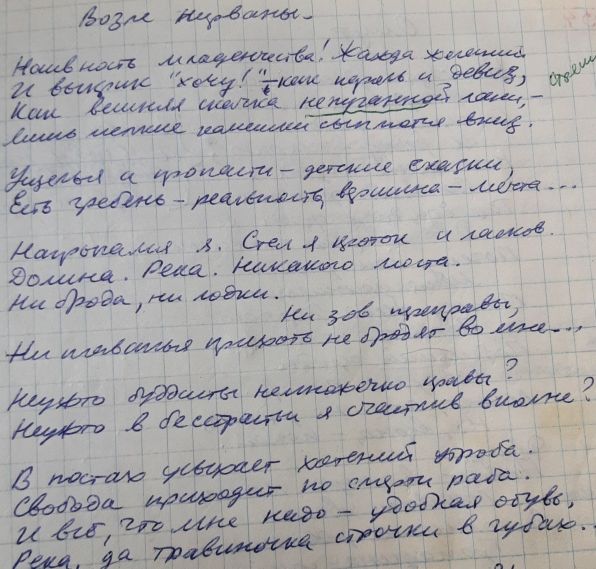 Возле Нирваны.
Наивность младенчества! Жажда желаний
И выкрик "хочу!" – как пароль и девиз,
Как вешняя скачка непуганной лани, –
Лишь мелкие камешки сыплются вниз.
Ущелья и пропасти – детские сказки,
Есть гребень – реальность, вершина – мечта...
Напрыгался я. Стал я кроток и ласков.
Долина. Река. Никакого моста.
Ни брода, ни лодки.
Ни зов переправы,
Ни плаванья прихоть не бродят во мне...
Неужто буддисты немножечко правы?
Неужто в бесстрастьи я счастлив вполне?
В усыхает хотений утроба.
Свобода приходит по смерти раба.
И всё, что мне надо – удобная обувь,
Река, да травиночка строчки в губах...